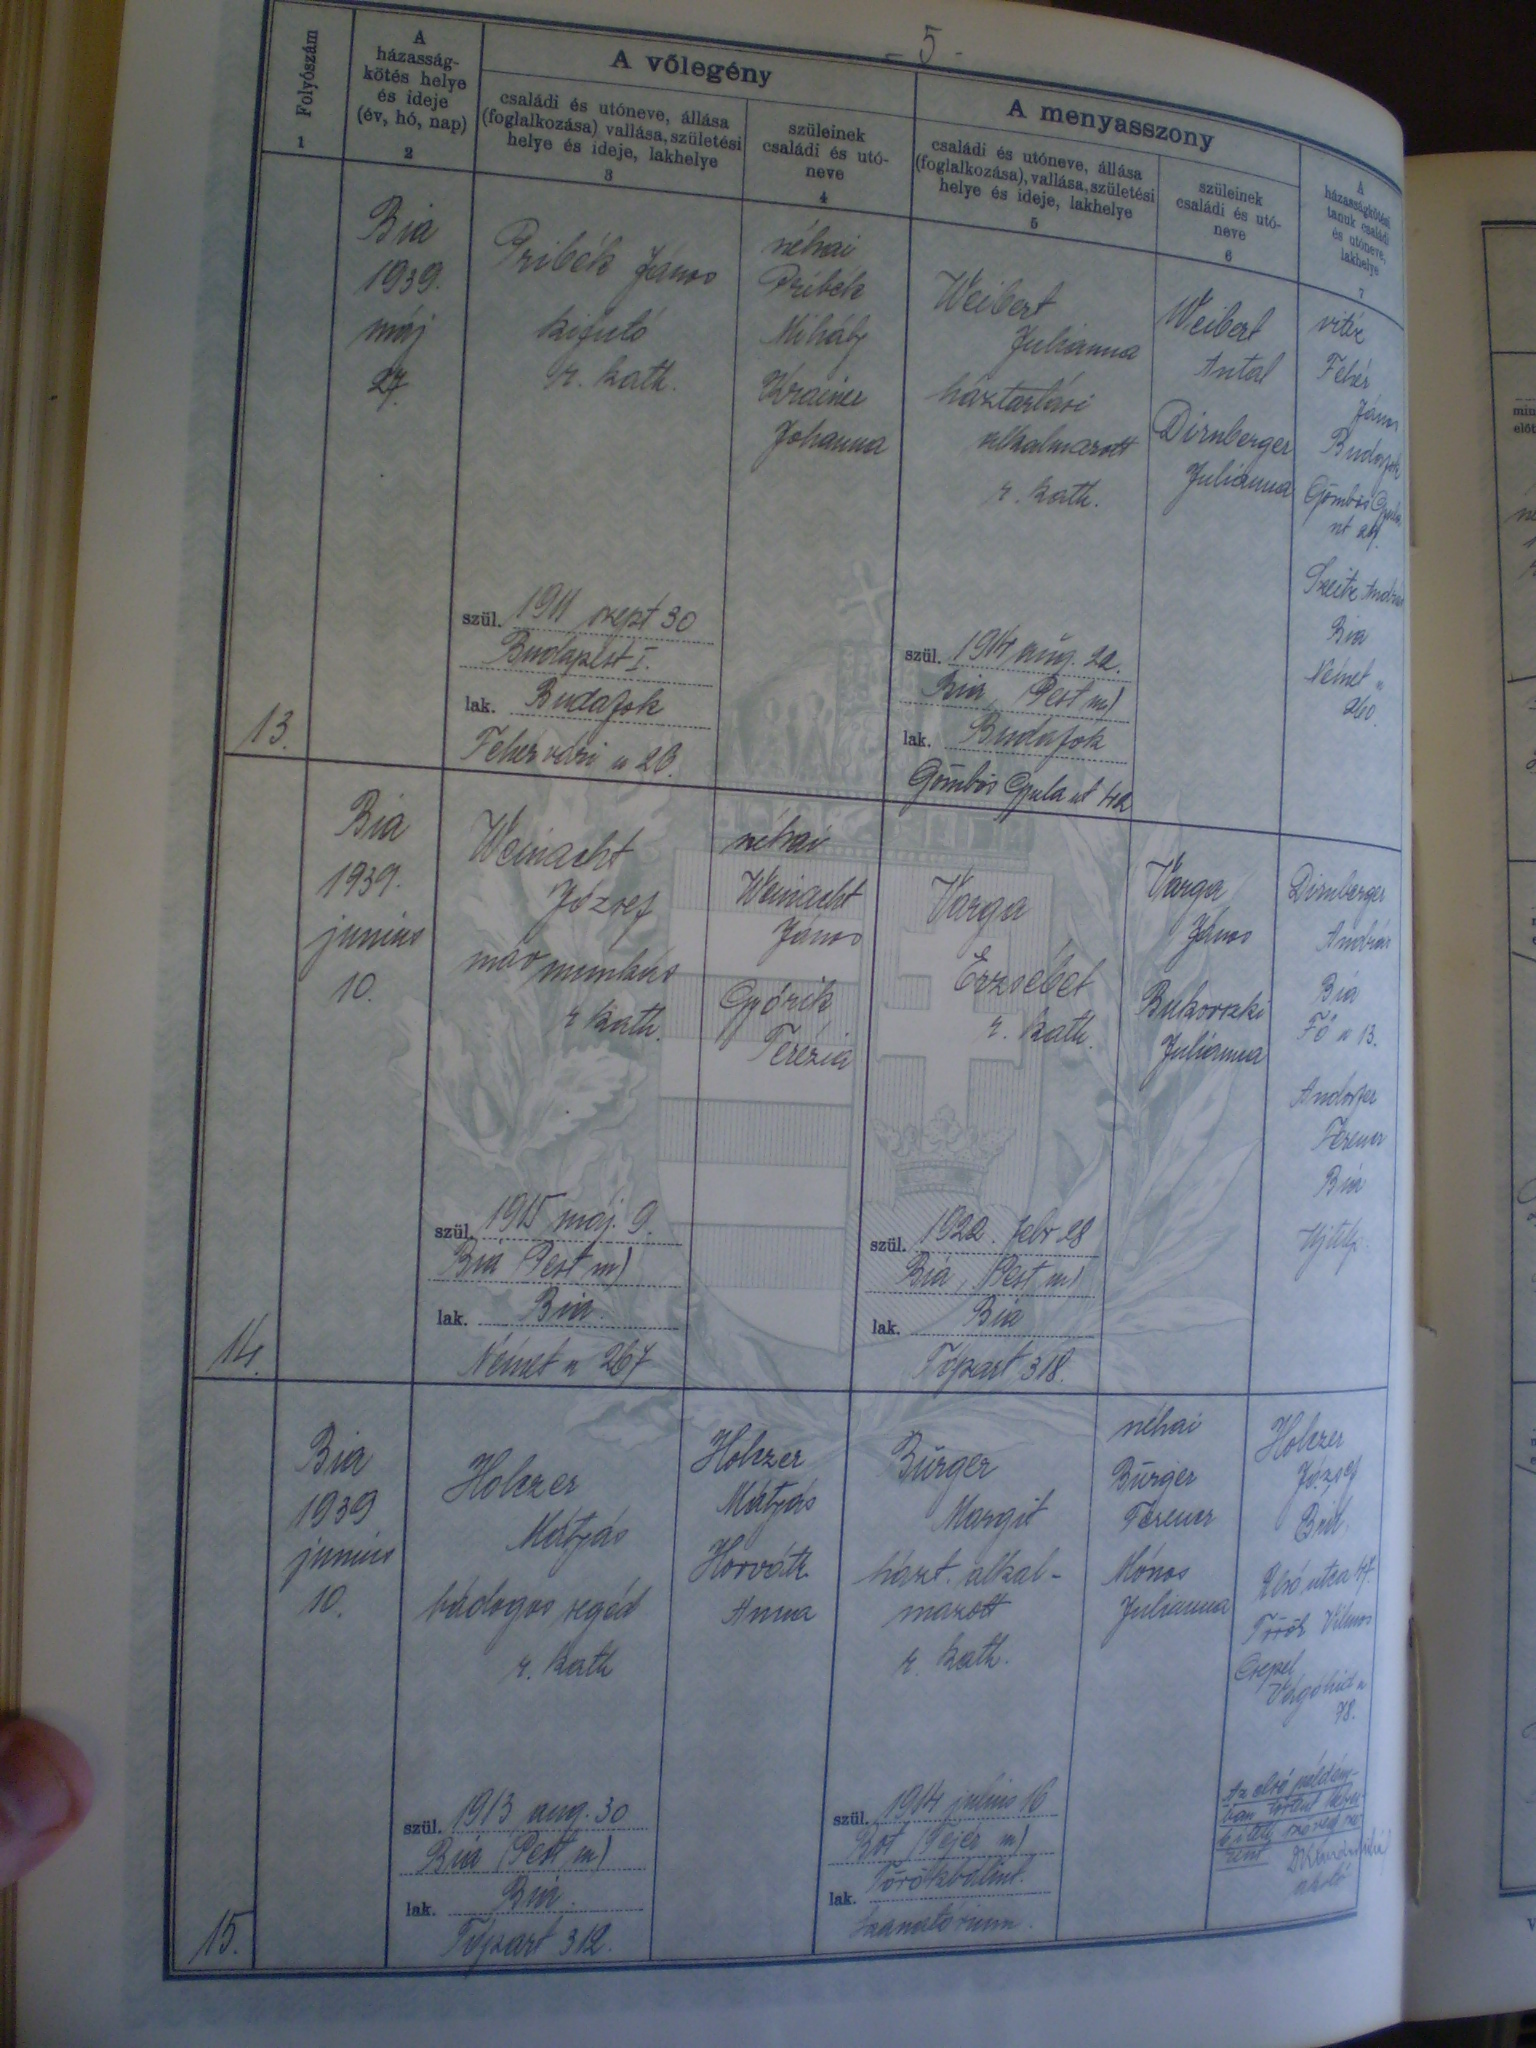 - 5 -
Folyószám
1
A
házasság-
kötés helye
és ideje
(év, hó, nap)
2
A vőlegény
családi és utóneve, állása
(foglalkozása) vallása, születési
helye és ideje, lakhelye
3
szüleinek
családi és utó-
neve
4
A menyasszony
családi és utóneve, állása
(foglalkozása), vallása, születési
helye és ideje, lakhelye
5
szüleinek
családi és utó-
neve
6
A
házasságkötési
tanuk családi
és utóneve,
lakhelye
7
13.
Bia
1939.
máj
27.
Pribék János
kifutó
r. kath.
szül. 1911 szept 30
Budapest I.
lak. Budafok
Fehérvári u 23.
néhai
Pribék
Mihály
Krainer
Johanna
Weibert
Julianna
háztartási
alkalmazott
r. kath.
szül. 1914 aug. 22.
Bia, (Pest m)
lak. Budafok
Gömbös Gyula ut 42
Weibert
Antal
Dirnberger
Julianna
vitéz
Fehér
János
Budafok
Gömbös Gyula
Szeitz András
Bia
Német u
260.
14.
Bia
1939.
junius
10.
Weinacht
József
máv munkás
r kath.
szül. 1915 máj. 9.
Bia (Pest m)
lak. Bia.
Német u 267
néhai
Weinacht
János
Győrik
Terézia
Varga
Erzsébet
r. kath.
szül. 1922. febr 28
Bia, (Pest m)
lak. Bia
Tópart 318.
Varga
János
Bukovszki
Julianna
Dirnberger
András
Bia
Fő u 13.
Andorfer
Ferenc
Bia
Ujtelep
15.
Bia
1939
junius
10.
Holczer
Mátyás
bádogos segéd
r. kath
szül. 1913 aug. 30
Bia (Pest m)
lak. Bia.
Tópart 312.
Holczer
Mátyás
Horváth
Anna
Bürger
Margit
házt. alkal-
mazott
r. kath.
szül. 1914 julius 16
(Fejér m)
lak. Törökbálint.
Szanatórium.
néhai
Bürger
Ferenc
Mónos
Julianna
Holczer
József
Bia.
Alsó utca 47.
Török Vilmos
Csepel
Vágóhid u
78.
Az első példány-
ban történt
szöveg